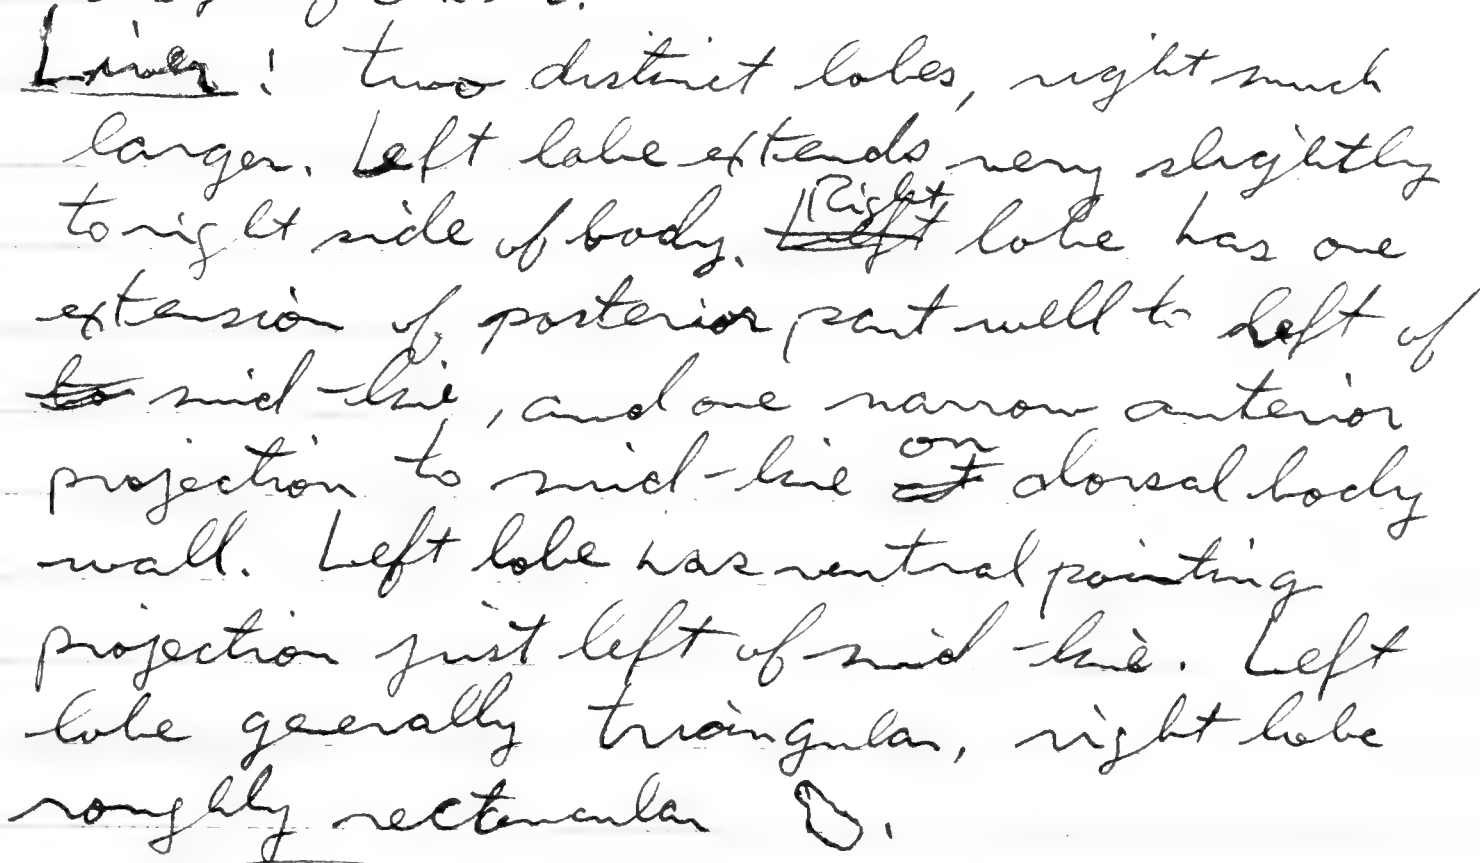 Liver: two distinct lobes, right much
larger. Left lobe extends very slightly
to right side of body. Left Right lobe has one
extension of posterior part well to left of
to mid-line, and one narrow anterior
projection to mid-line at on dorsal body
wall. Left lobe has ventral pointing
projection just left of mid-line. Left
lobe generally triangular, right lobe
roughly rectangular .